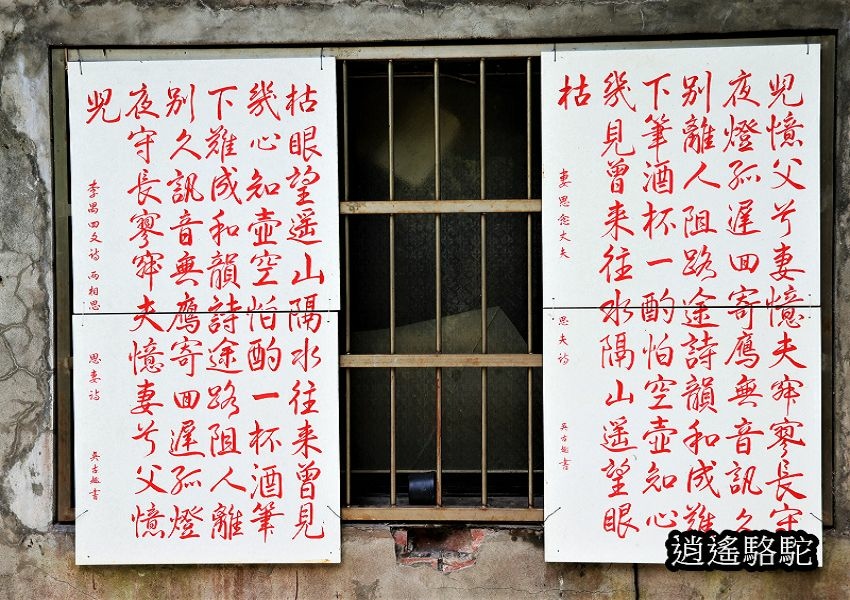 兒憶父兮妻憶夫寂寥長守
夜燈孤遲囬寄鴈無音訊久
别離人阻路途詩韻和成難
下筆酒杯一酌怕空壺知心
幾見曾来往水隔山遥望眼
枯
妻思念丈夫
思夫詩
枯眼望遥山隔水往来曾見
幾心知壺空怕酌一杯酒筆
下難成和韻詩途路阻人離
别久訊音無鴈寄囬遲孤燈
夜守長寥寂夫憶妻兮父憶
兒
李禺囬文詩 兩相思
思妻詩
逍遙駱駝